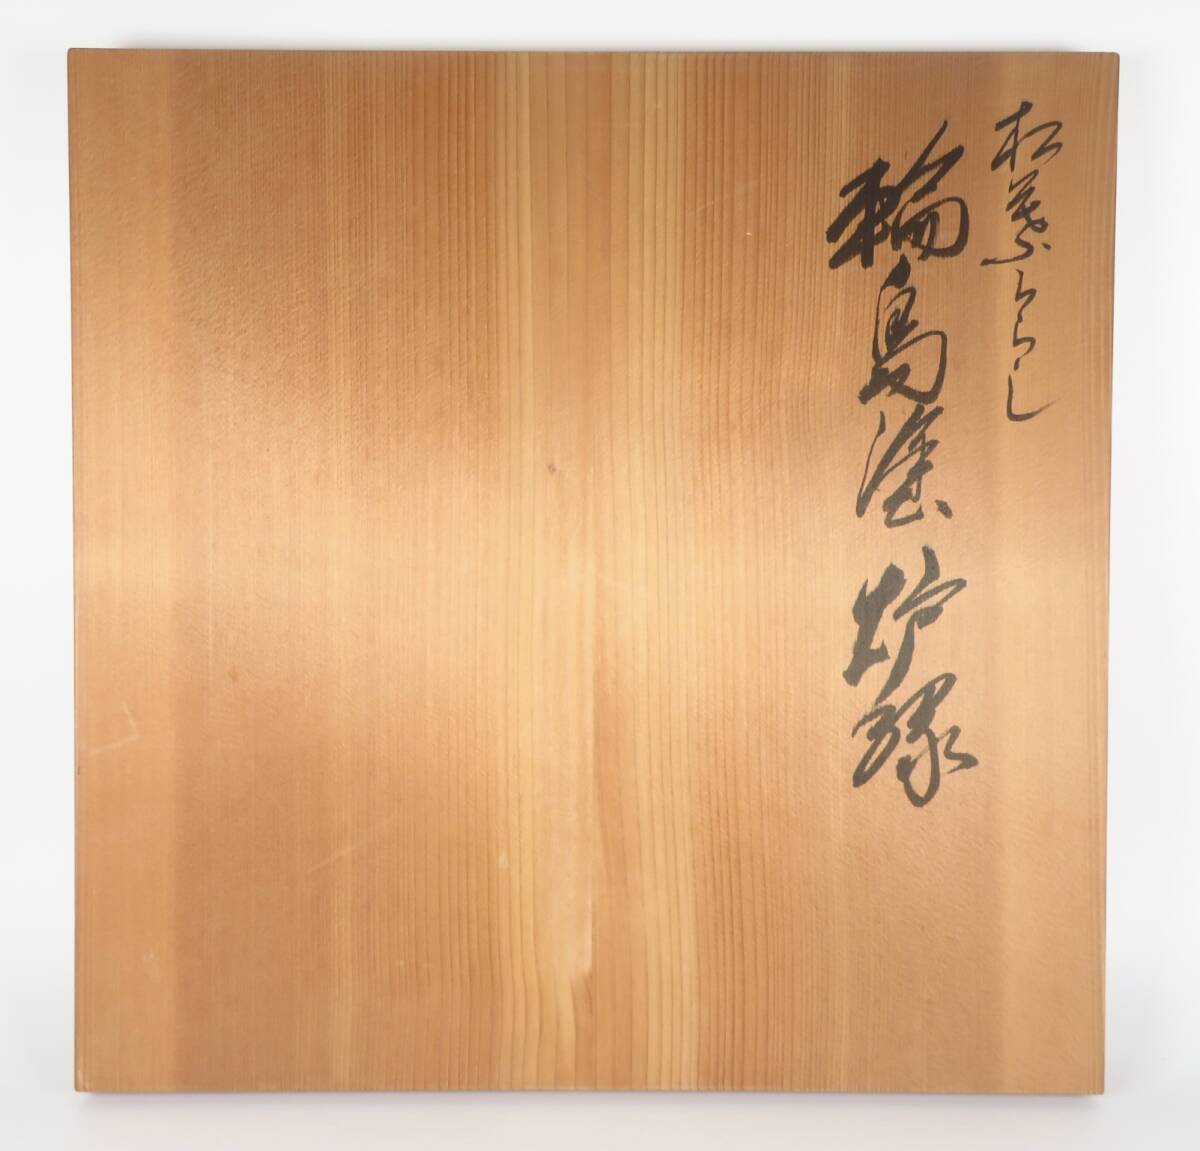 松葉ちらし
輪島塗 炉縁